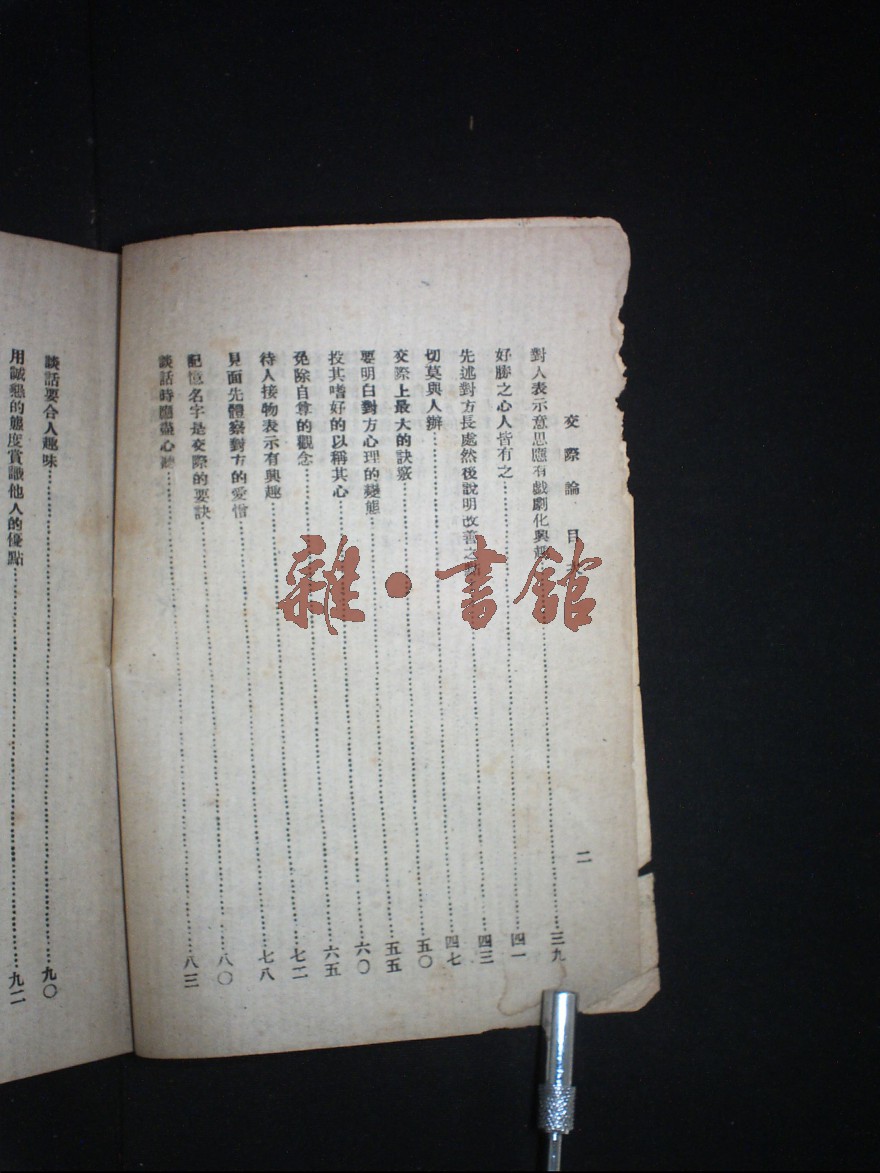 交際論 目 二
對人表示意思應有戲劇化興趣……三九
好勝之心人皆有之……四一
先述對方長處然後說明改善之……四三
切莫與人辦……四七
交際上最大的訣竅……五〇
要明白對方心理的變態……五五
投其嗜好的以稱其心……六〇
免除自尊的觀念……六五
待人接物表示有興趣……七二
見面先體察對方的愛憎……七八
記憶名字是交際的要訣……八〇
談話時應盡心聽……八三
談話要合人趣味……九〇
用誠懇的態度賞識他人的優點……九二
雜·書館